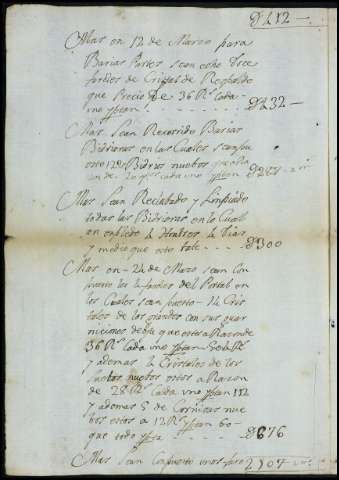 D 212 —
Mas on 12 de Marzo para
Barias Partes sean echo Doce
faroles de Cristal de Resbaldo
que Precio de 36 Rˢ Cada
uno ymptan . - - - - D 232 —
Mas Sean Recorrido Barias
Bidrieras en las Cuales seanpu
esto 12 Bidrios nuebos
cada uno yptan
Mas Sean Reciatado y Linpiado
todas las Bidrieras en lo Cual
en
y medio que esto Vale - - - - D 300
Mas on - 24 de Marzo sean Con
puesto los 2 faroles del Portal en
los Cuales sean puesto - 14 Cris
tales de los grandes con sus guar
niciones de que estos a Razon de
36 Rˢ Cada uno yptan 504 Rˢ
y ademas 4 Cristales de los
nuebos estos a Razon
de 28 Rˢ Cada uno yptan 112
y ademas 5 de Cornisas nue
bos estos a 12 Rˢ yptan 60 -
que todo ypta - - - - D 676
Mas Sean Conpuesto unos faro